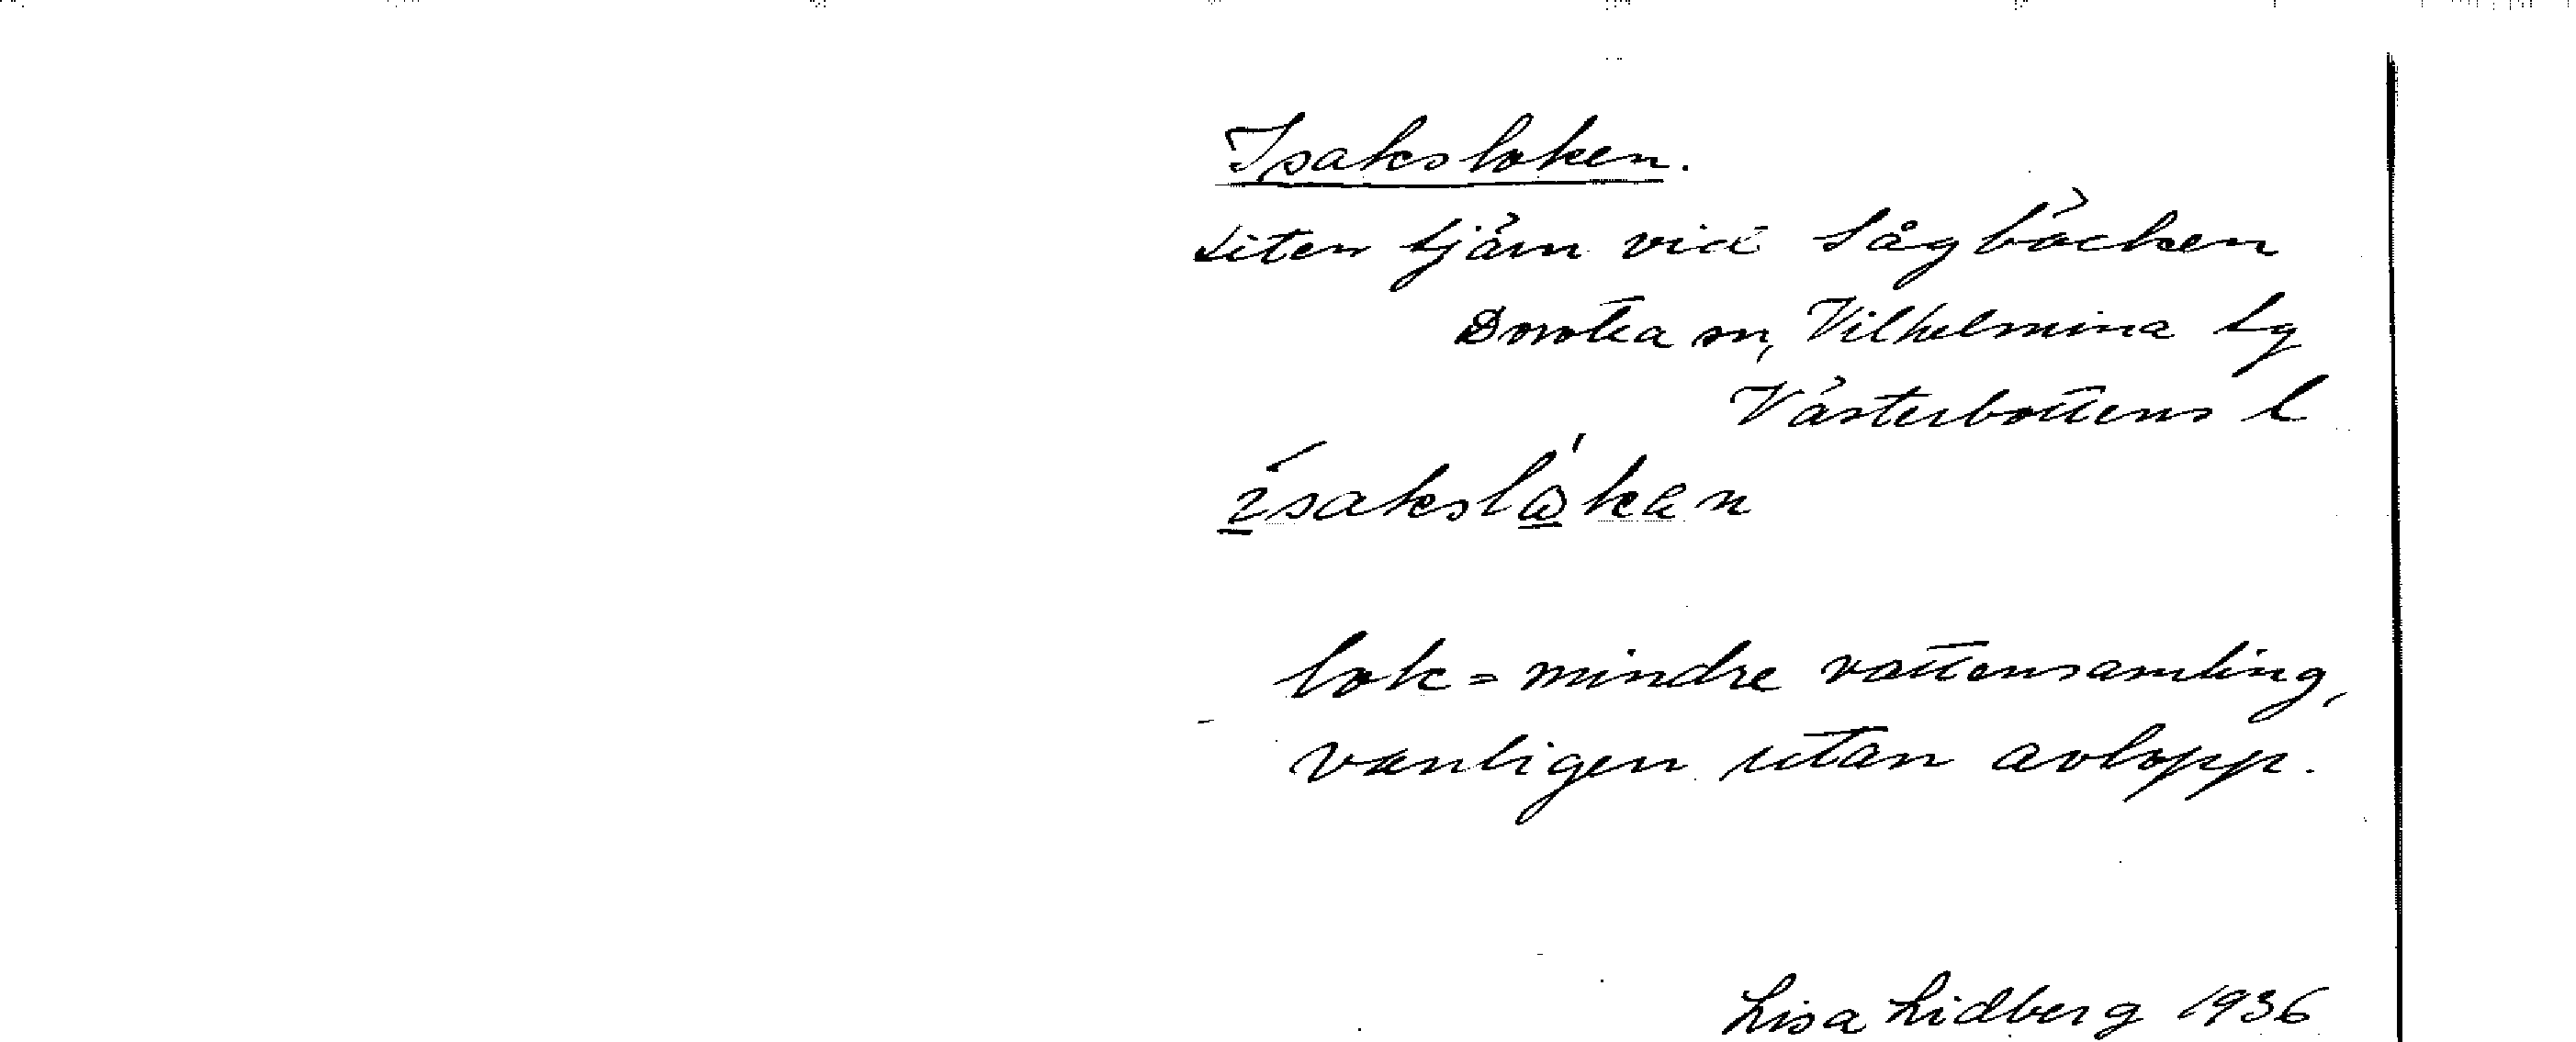 Isaksloken.
Liten tjärn vid Sågbäcken
Dorotea sn, Vilhelmina tg
Västerbottens l
ísakslå̀kan
lok = mindre vattensamling,
vanligen utan avlopp.
Lisa Lidberg 1936